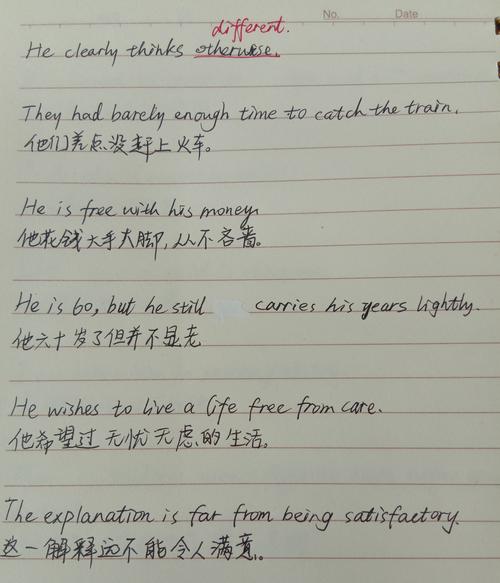 No. Date
different.
He clearly thinks otherwise.
They had barely enough time to catch the train.
他们差点没赶上火车。
He is free with his money.
他花钱大手大脚,从不吝啬。
He is 60, but he still carries his years lightly.
他六十岁了但并不显老
He wishes to live a life free from care.
他希望过无忧无虑的生活。
The explanation is far from being satisfactory.
这一解释远不能令人满意。